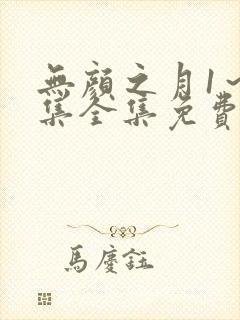 無顏之月1~
集全集免費
馬慶鈺